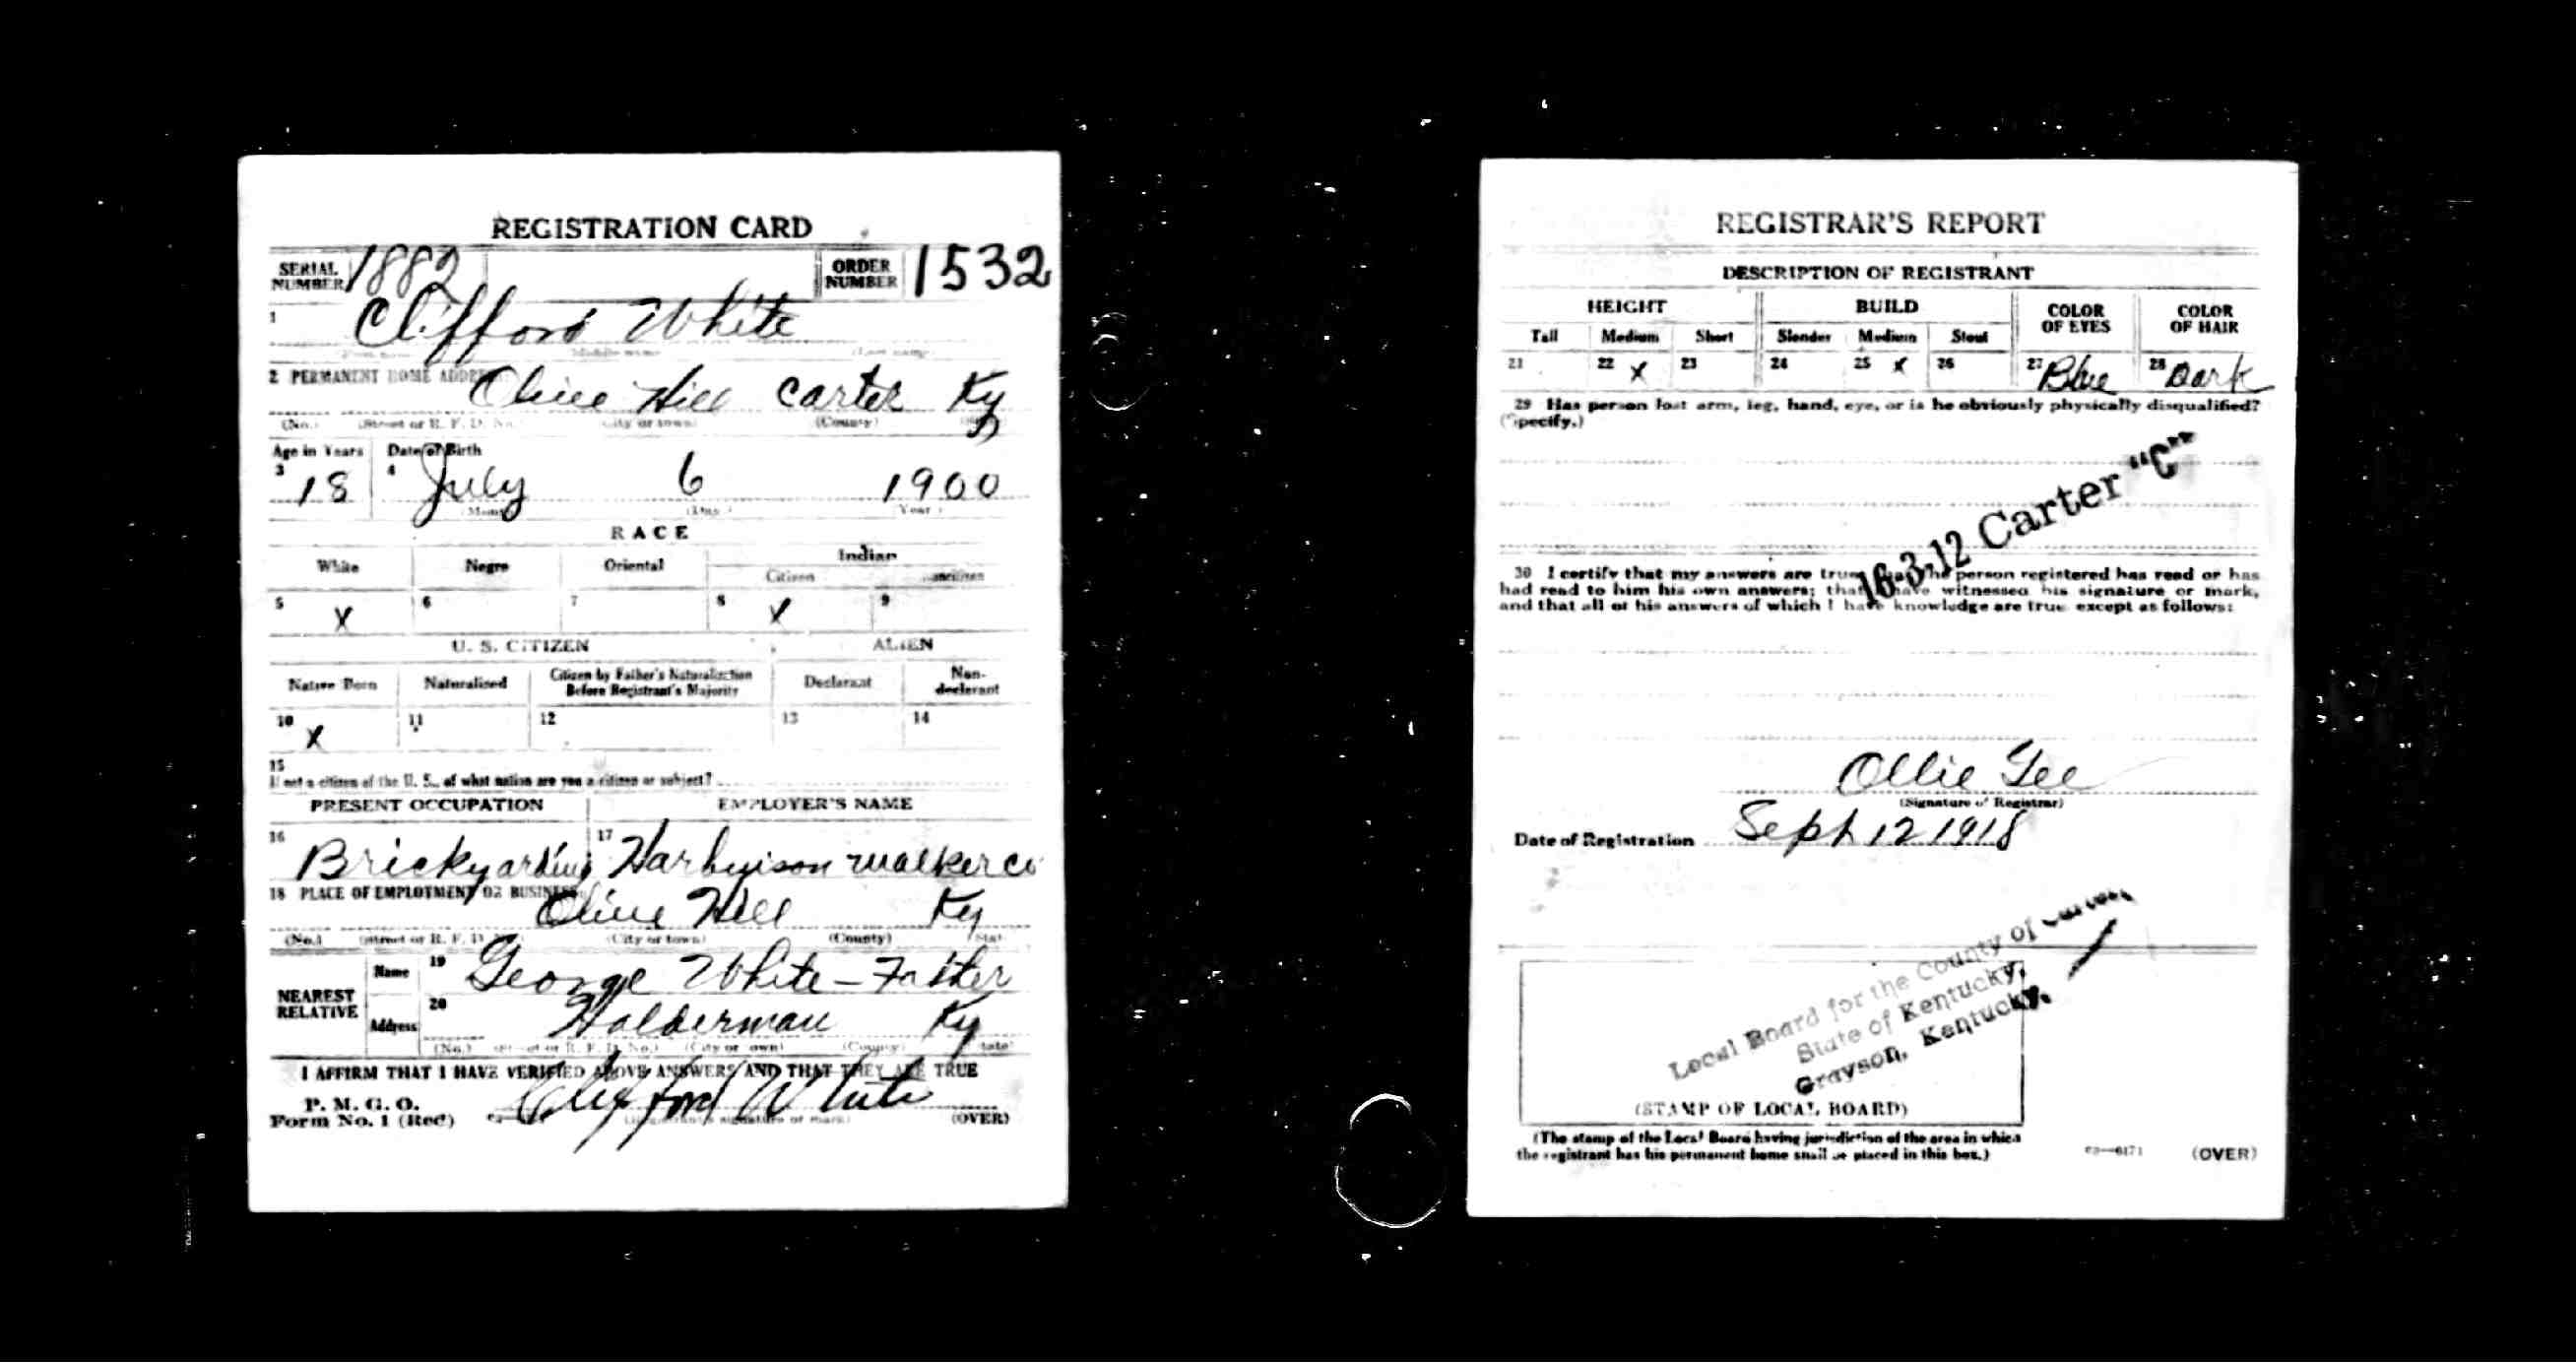 REGISTRATION CARD
SERIAL NUMBER 1882 ORDER NUMBER 1532
1 Clifford White
2 PERMANENT HOME ADDRESS: Olive Hill Carter Ky
(No.) (Street or R. F. D. No.) (City or town) (County)
Age in Years Date of Birth
3 18 4 July 6 1900
(Month) (Day) (Year)
RACE
White Negro Oriental Indian
Citizen Noncitizen
5 X 6 7 8 X 9
U. S. CITIZEN ALIEN
Native Born Naturalized Citizen by Father's Naturalization Before Registrant's Majority Declarant Non-declarant
10 X 11 12 13 14
15
If not a citizen of the U. S., of what nation are you a citizen or subject?
PRESENT OCCUPATION EMPLOYER'S NAME
16 Brickyarding 17 Harbyison walker co
18 PLACE OF EMPLOYMENT OR BUSINESS: Olive Hill Ky
(No.) (Street or R. F. D. No.) (City or town) (County) (State)
NEAREST RELATIVE
Name 19 George White - Father
Address 20 Halderman Ky
(No.) (Street or R. F. D. No.) (City or town) (County) (State)
I AFFIRM THAT I HAVE VERIFIED ABOVE ANSWERS AND THAT THEY ARE TRUE
P. M. G. O.
Form No. 1 (Red) Clifford White (OVER)
(Registrant's signature or mark)
REGISTRAR'S REPORT
DESCRIPTION OF REGISTRANT
HEIGHT BUILD COLOR OF EYES COLOR OF HAIR
Tall Medium Short Slender Medium Stout
21 22 X 23 24 25 X 26 27 Blue 28 Dark
29 Has person lost arm, leg, hand, eye, or is he obviously physically disqualified?
(Specify.)
16-3-12 Carter "C"
30 I certify that my answers are true; that the person registered has read or has
had read to him his own answers; that I have witnessed his signature or mark,
and that all of his answers of which I have knowledge are true except as follows:
Ollie Gee
(Signature of Registrar)
Date of Registration Sept 12 1918
Local Board for the County of Carter,
State of Kentucky,
Grayson, Kentucky.
(STAMP OF LOCAL BOARD)
(The stamp of the Local Board having jurisdiction of the area in which
the registrant has his permanent home shall be placed in this box.)
03—6171 (OVER)